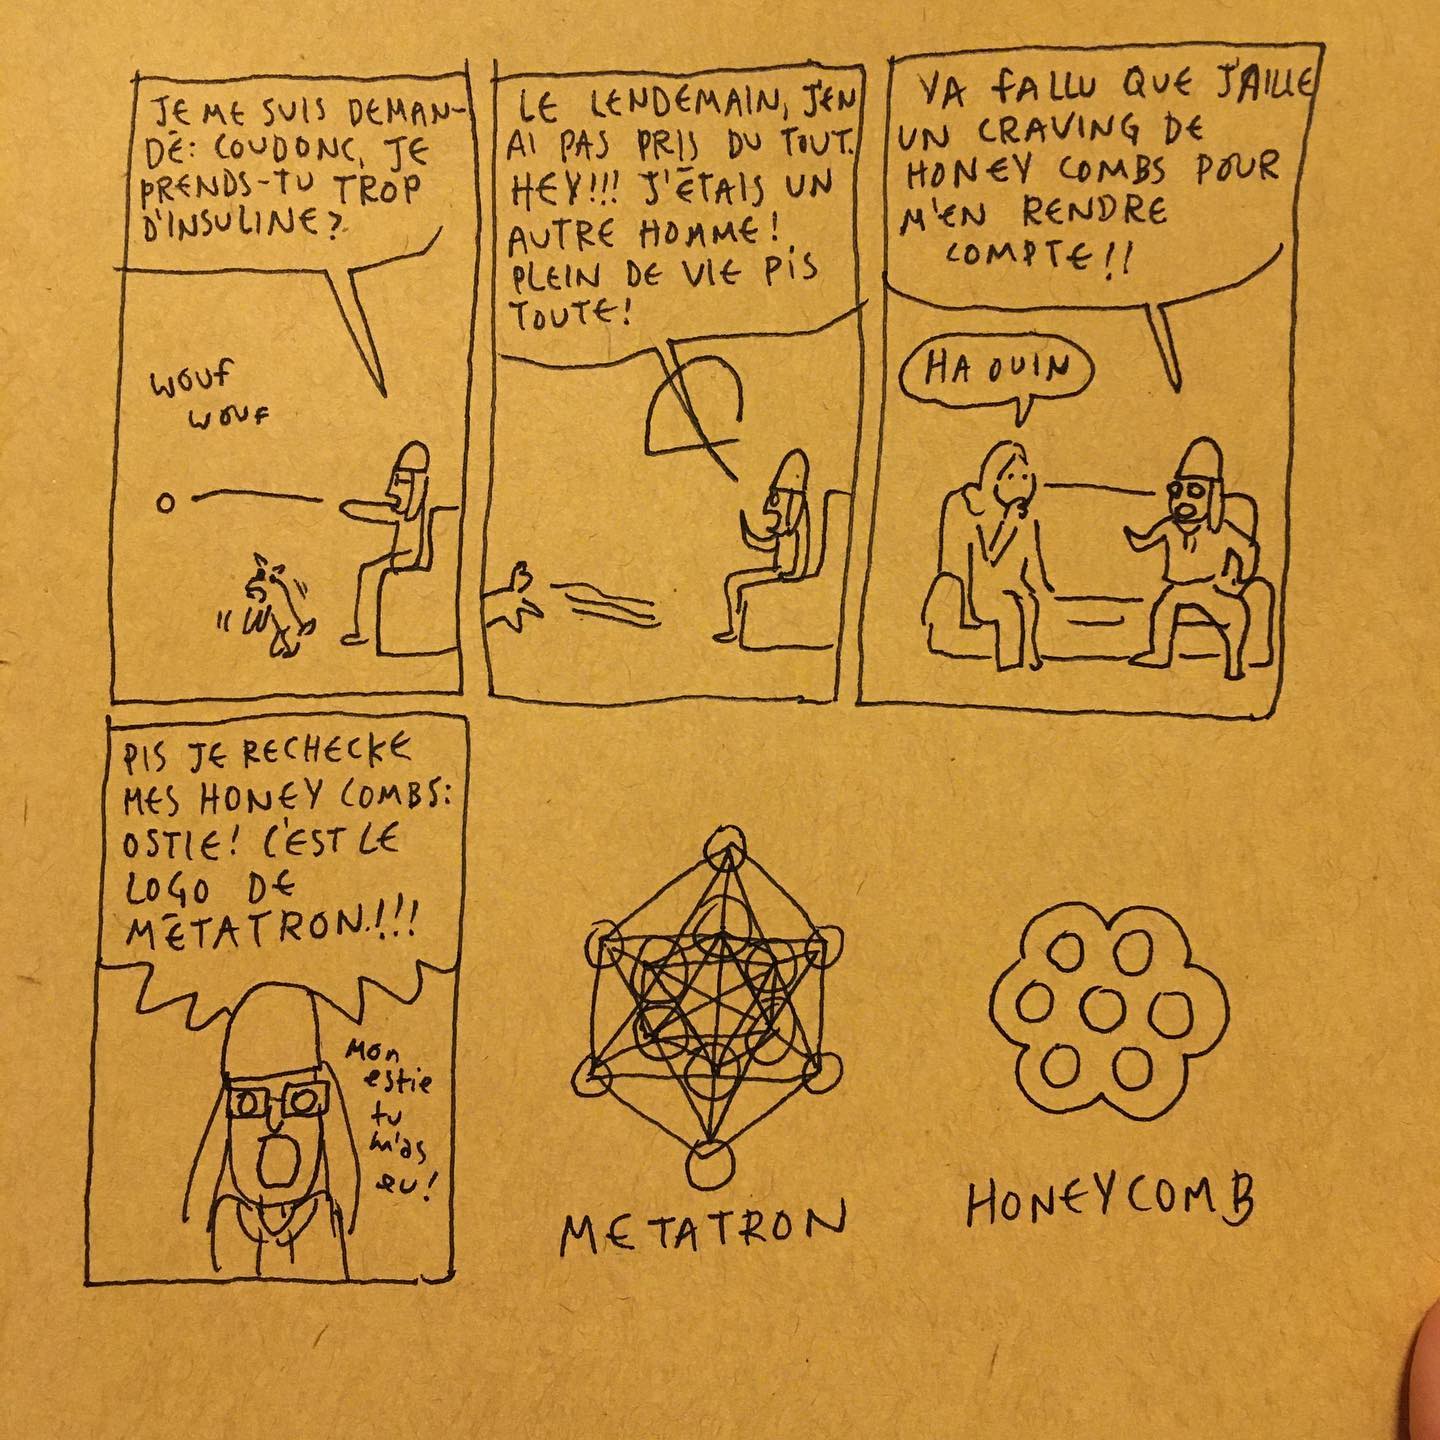 JE ME SUIS DEMAN-
DÉ: COUDONC, JE
PRENDS-TU TROP
D'INSULINE?
WOUF
WOUF
LE LENDEMAIN, J'EN
AI PAS PRIS DU TOUT.
HEY!!! J'ÉTAIS UN
AUTRE HOMME!
PLEIN DE VIE PIS
TOUTE!
YA FALLU QUE J'AILLE
UN CRAVING DE
HONEY COMBS POUR
M'EN RENDRE
COMPTE!!
HA OUIN
PIS JE RECHECKE
MES HONEY COMBS:
OSTIE! C'EST LE
LOGO DE
MÉTATRON!!!
Mon
estie
tu
m'as
eu!
METATRON
HONEYCOMB